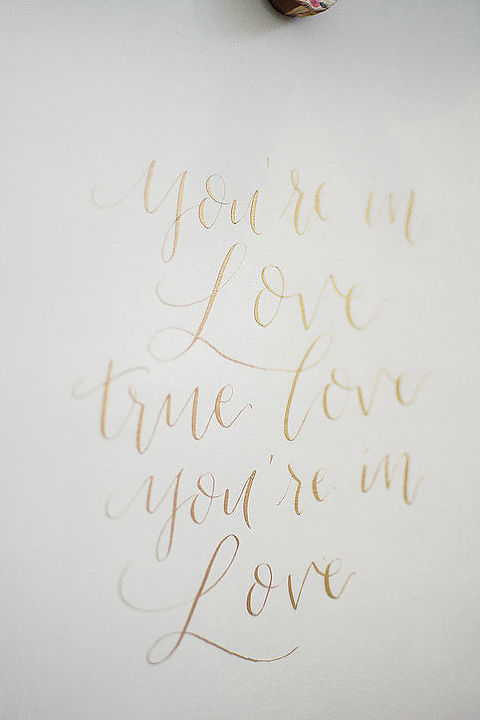 you're in
Love
true love
you're in
Love